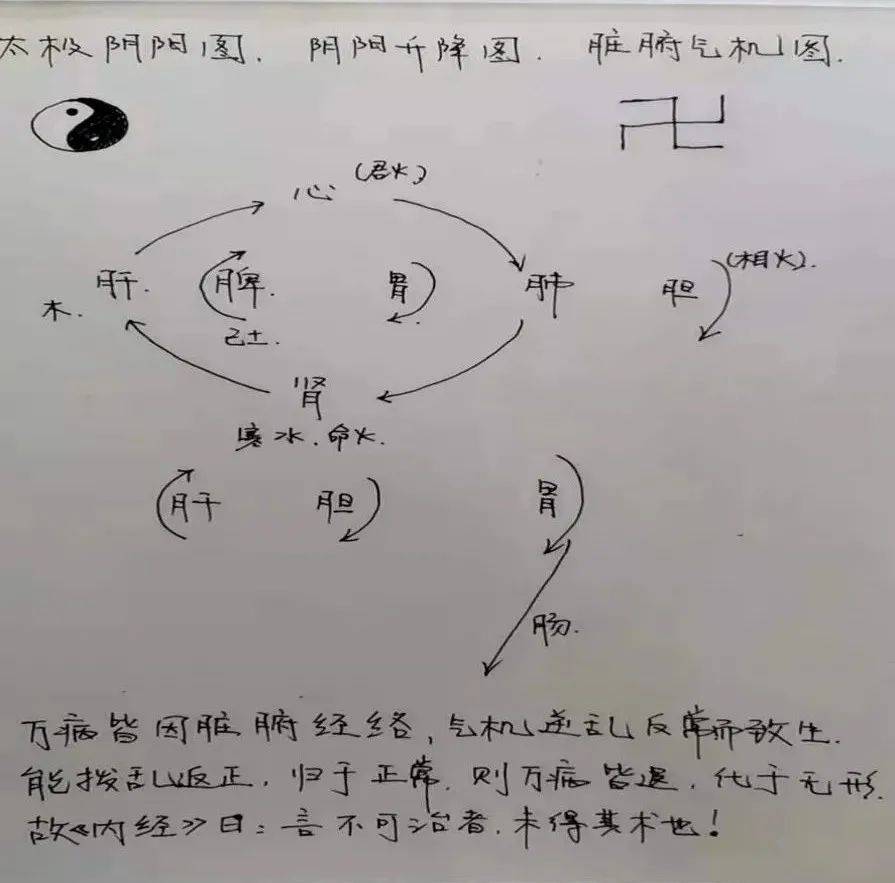 太极阴阳图. 阴阳升降图. 脏腑气机图.
卍
心 (君火)
肝. 脾. 胃 肺 胆 (相火).
木. 己土.
肾
寒水. 命火.
肝 胆 胃
肠.
万病皆因脏腑经络, 气机逆乱反常而致生.
能拨乱返正. 归于正常. 则万病皆退. 化于无形.
故《内经》曰: 言不可治者. 未得其术也!